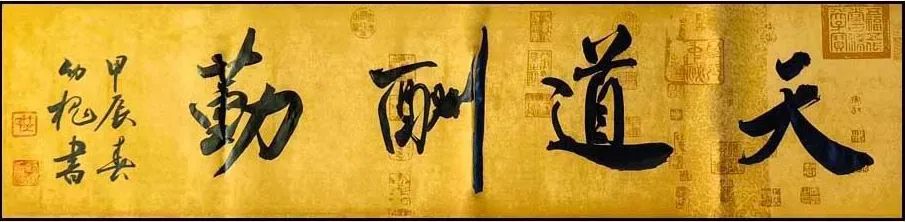 天道酬勤
甲辰春
幼槐書